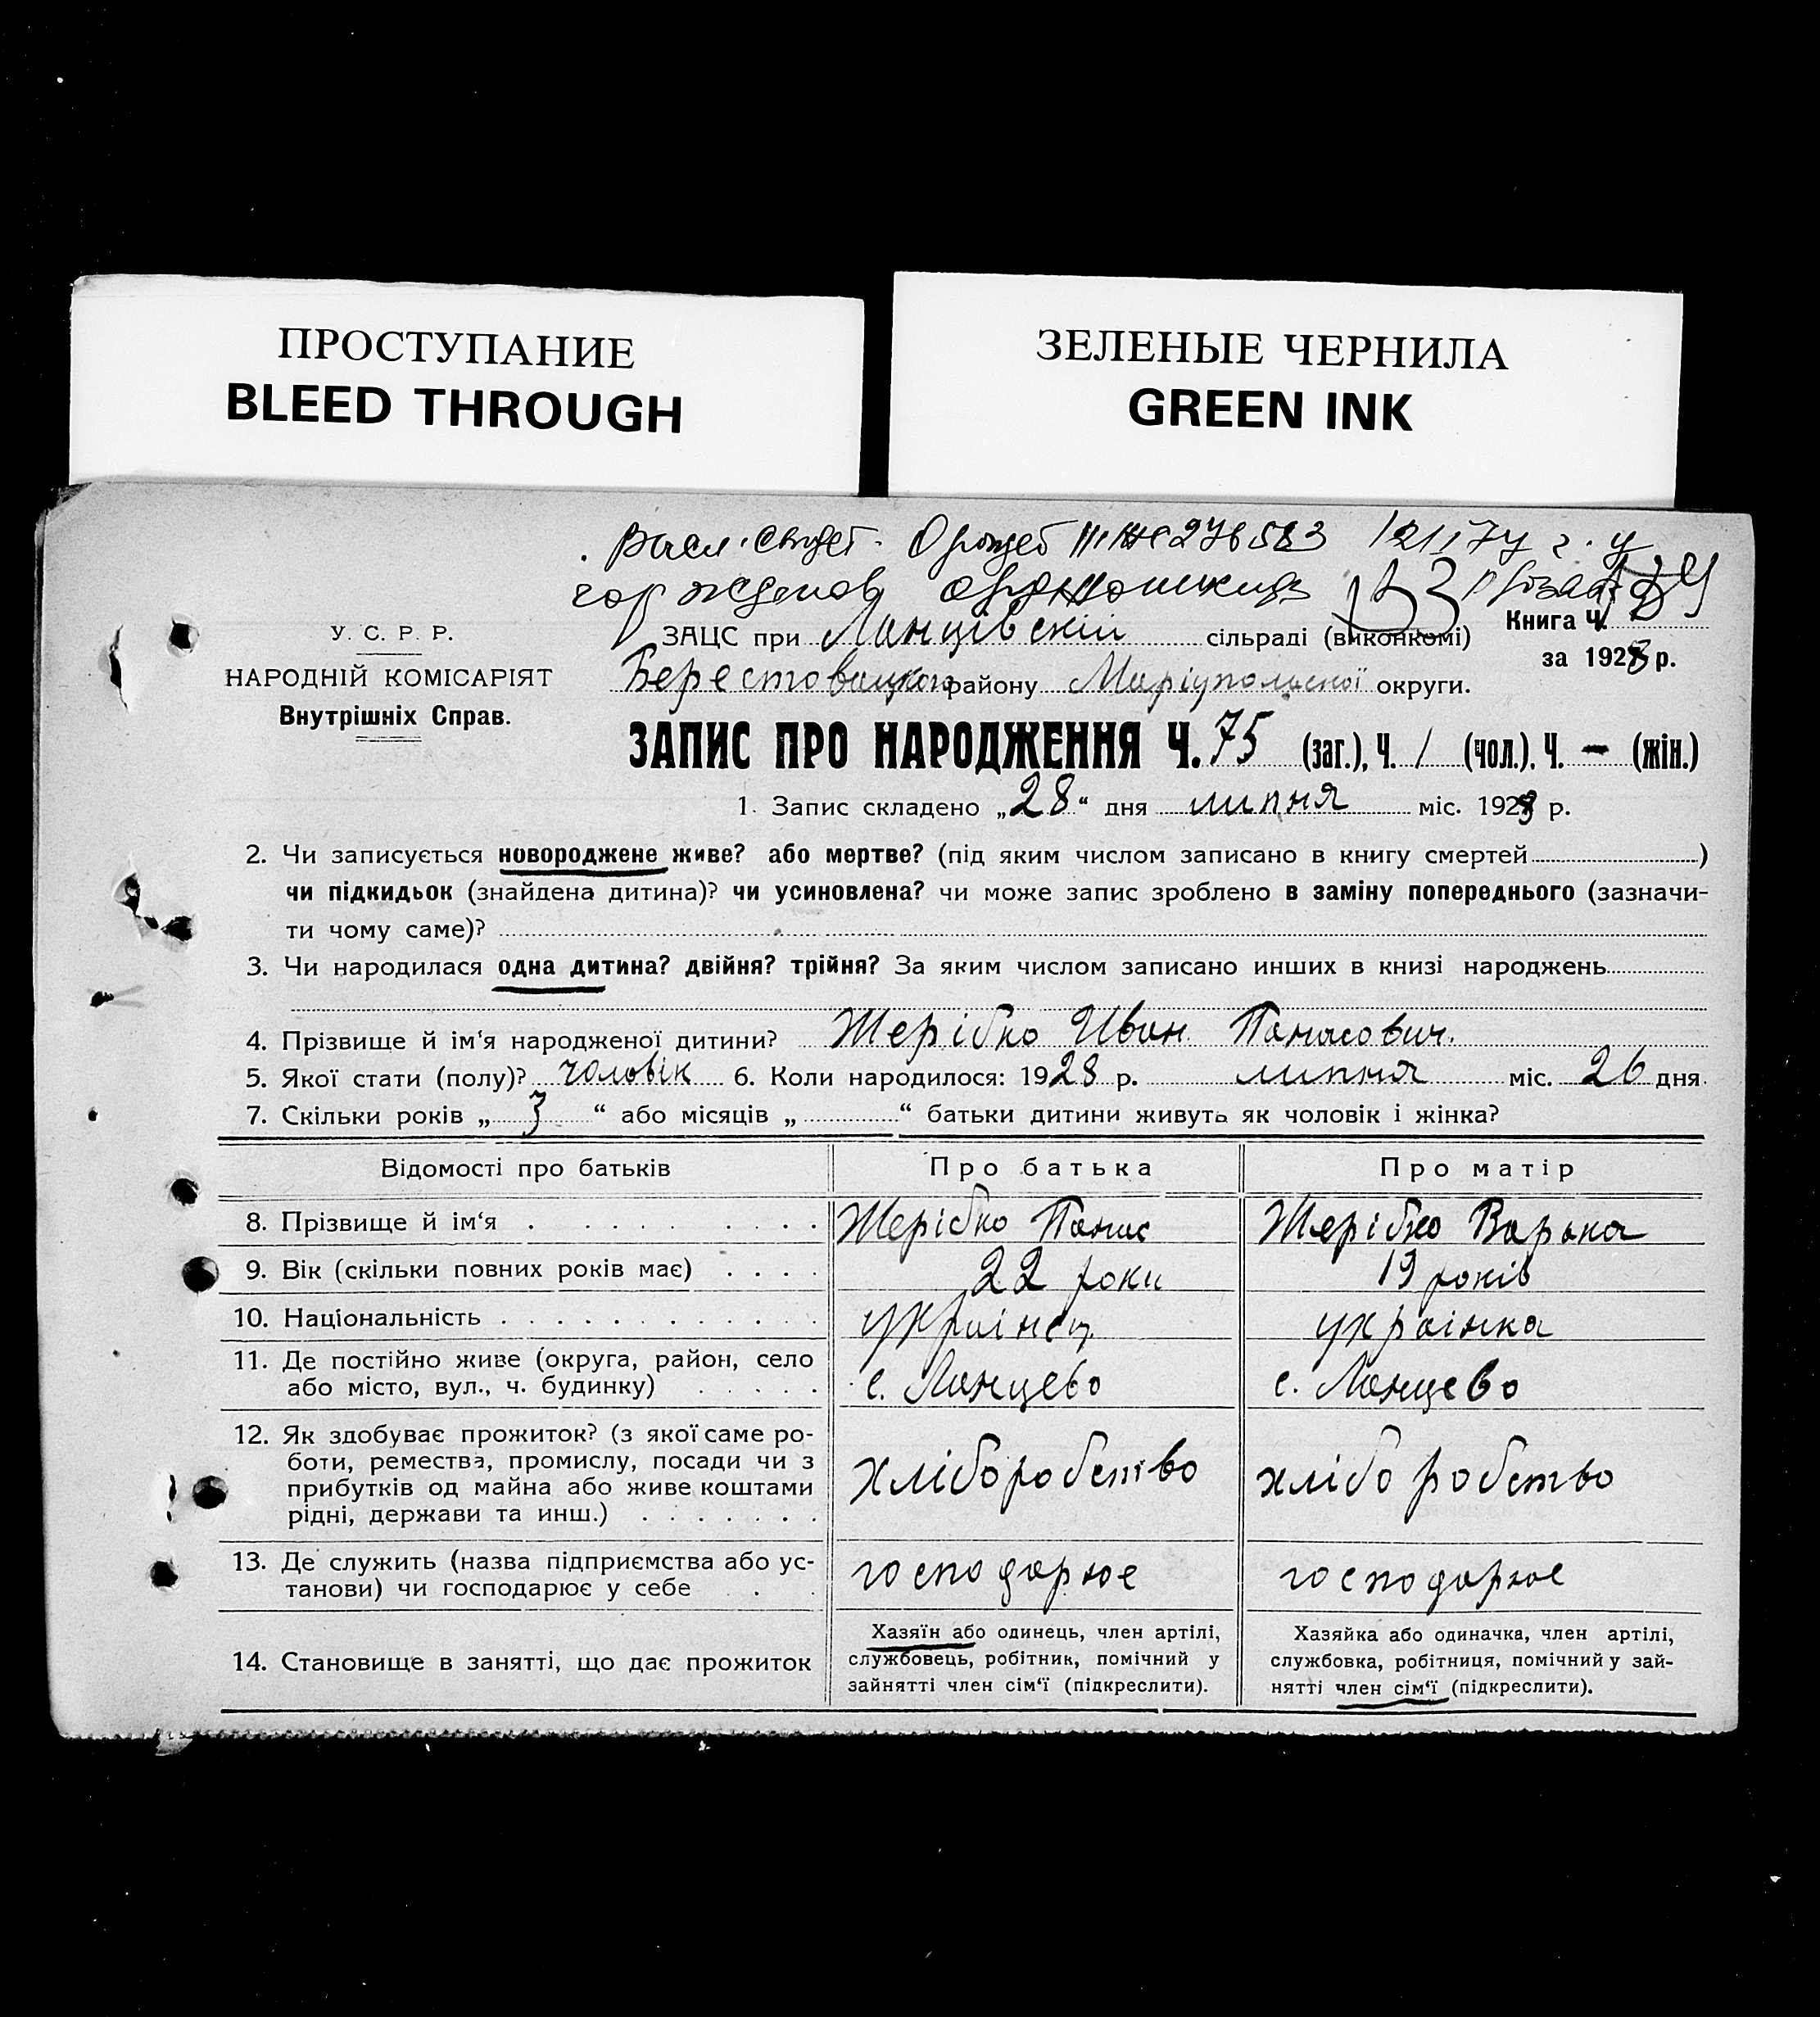 ПРОСТУПАНИЕ
BLEED THROUGH
ЗЕЛЕНЫЕ ЧЕРНИЛА
GREEN INK
У. С. Р. Р.
НАРОДНІЙ КОМІСАРІЯТ
Внутрішніх Справ.
ЗАЦС при Ланцівскій сільраді (виконкомі)
Книга Ч.
за 1928 р.
Берестовицкого району Маріупольської округи.
ЗАПИС ПРО НАРОДЖЕННЯ Ч. 75 (заг.), Ч. 1 (чол.). Ч. – (жін.)
1. Запис складено „28“ дня липня міс. 1928 р.
2. Чи записується новороджене живе? або мертве? (під яким числом записано в книгу смертей )
чи підкидьок (знайдена дитина)? чи усиновлена? чи може запис зроблено в заміну попереднього (зазначи-
ти чому саме)?
3. Чи народилася одна дитина? двійня? трійня? За яким числом записано инших в книзі народжень
4. Прізвище й ім‘я народженої дитини? Жерібко Иван Панасович.
5. Якої стати (полу)? чоловік 6. Коли народилося: 1928 р. липня міс. 26 дня
7. Скільки років „ 3 “ або місяців „ “ батьки дитини живуть як чоловік і жінка?
Відомості про батьків Про батька Про матір
8. Прізвище й ім‘я Жерібко Панас Жерібко Варька
9. Вік (скільки повних років має) 22 роки 19 років
10. Національність українец українка
11. Де постійно живе (округа, район, село
або місто, вул., ч. будинку) с. Ланцево с. Ланцево
12. Як здобуває прожиток? (з якої саме ро-
боти, ремества, промислу, посади чи з
прибутків од майна або живе коштами
рідні, держави та инш.) хліборобство хліборобство
13. Де служить (назва підприємства або ус-
танови) чи господарює у себе господарює господарює
14. Становище в занятті, що дає прожиток
Хазяїн або одинець, член артілі,
службовець, робітник, помічний у
зайнятті член сім‘ї (підкреслити).
Хазяйка або одиначка, член артілі,
службовка, робітниця, помічний у зай-
нятті член сім‘ї (підкреслити).